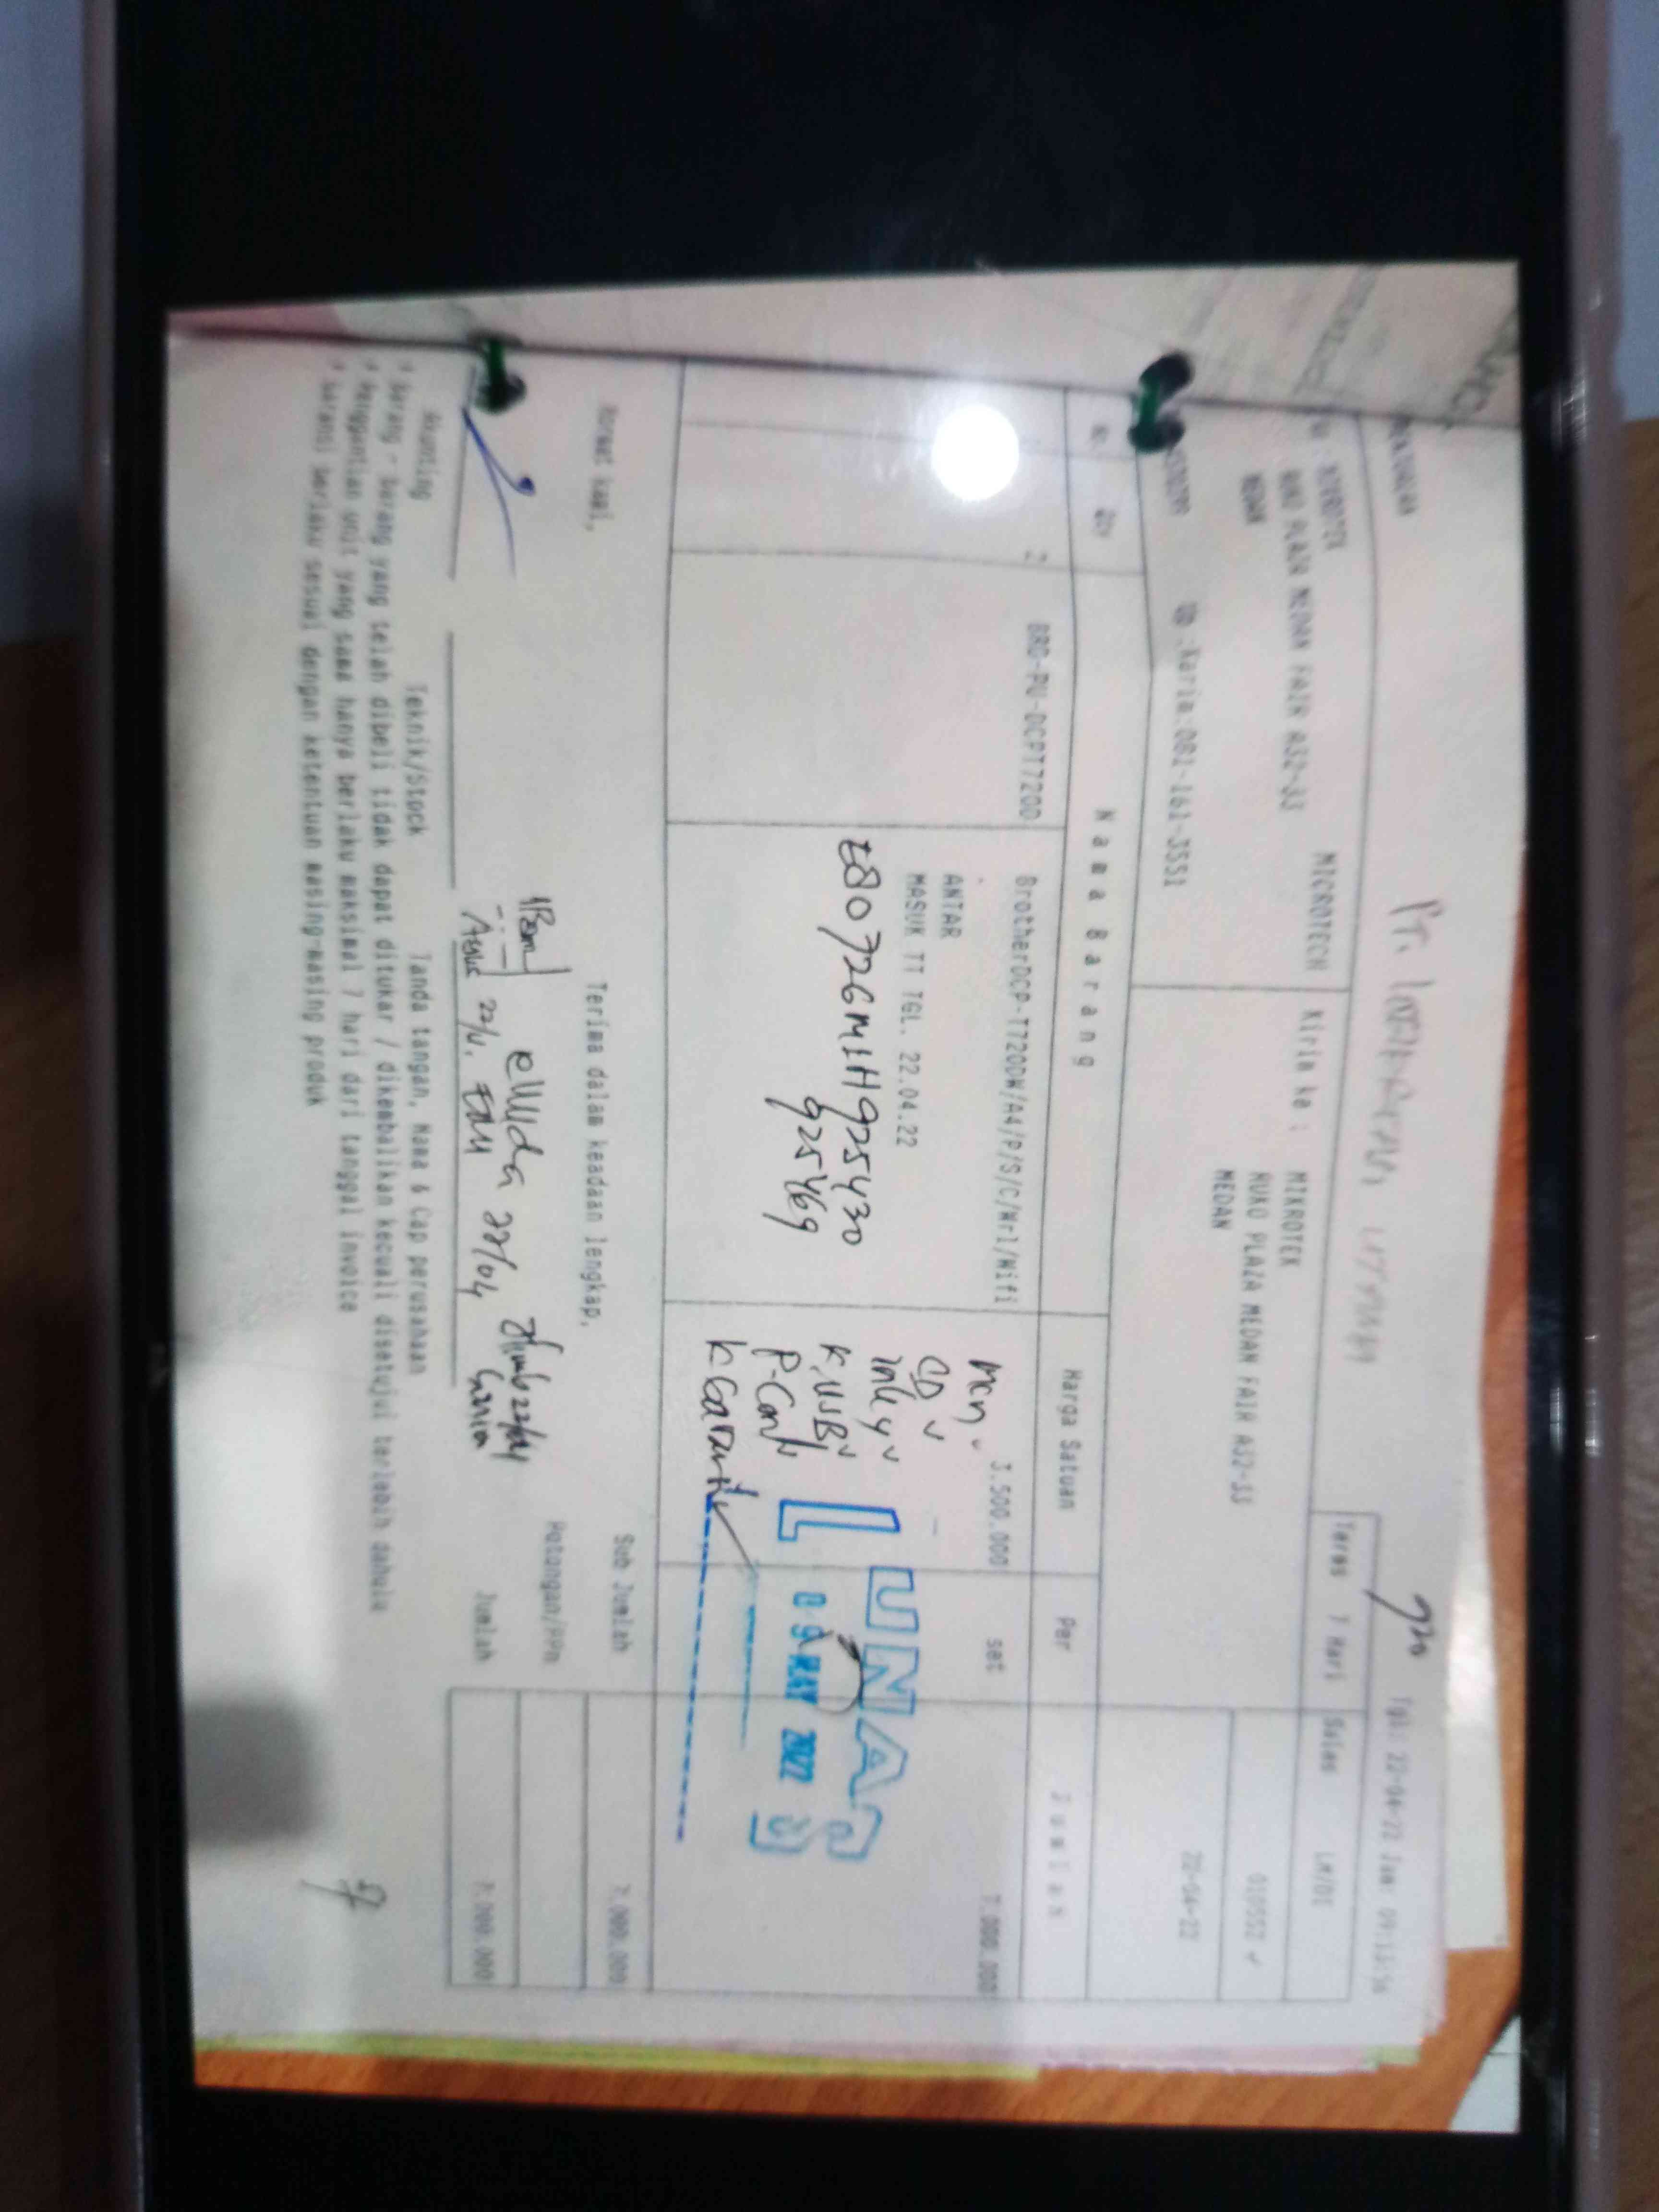 PT.
Tgl: 22-04-22 Jam: 09:13:56
MICROTECH
Kirim ke :
Terms 7 Hari
Sales LM/DI
MIKROTEK
RUKO PLAZA MEDAN FAIR A32-33
MEDAN
MIKROTEK
RUKO PLAZA MEDAN FAIR A32-33
MEDAN
UP :Karia:081-161-3551
22-04-22
No. Qty Nama Barang Harga Satuan Per Jumlah
2 BRO-PU-DCPT720D BrotherDCP-T720DW/A4/P/S/C/Wrl/Wifi 3.500.000 set 7.000.000
ANTAR
MASUK TT TGL. 22.04.22
E80726M1H925430
925469
mcn
CD
K.USB
K Garansi
LUNAS
09 MAY 2022
Hormat kami,
Terima dalam keadaan lengkap,
Sub Jumlah 7.000.000
Potongan/PPn
Jumlah 7.000.000
ellyda 22/04
22/4
Akunting Teknik/Stock Tanda tangan, Nama & Cap perusahaan
* Barang - barang yang telah dibeli tidak dapat ditukar / dikembalikan kecuali disetujui terlebih dahulu
* Penggantian unit yang sama hanya berlaku maksimal 7 hari dari tanggal invoice
* Garansi berlaku sesuai dengan ketentuan masing-masing produk